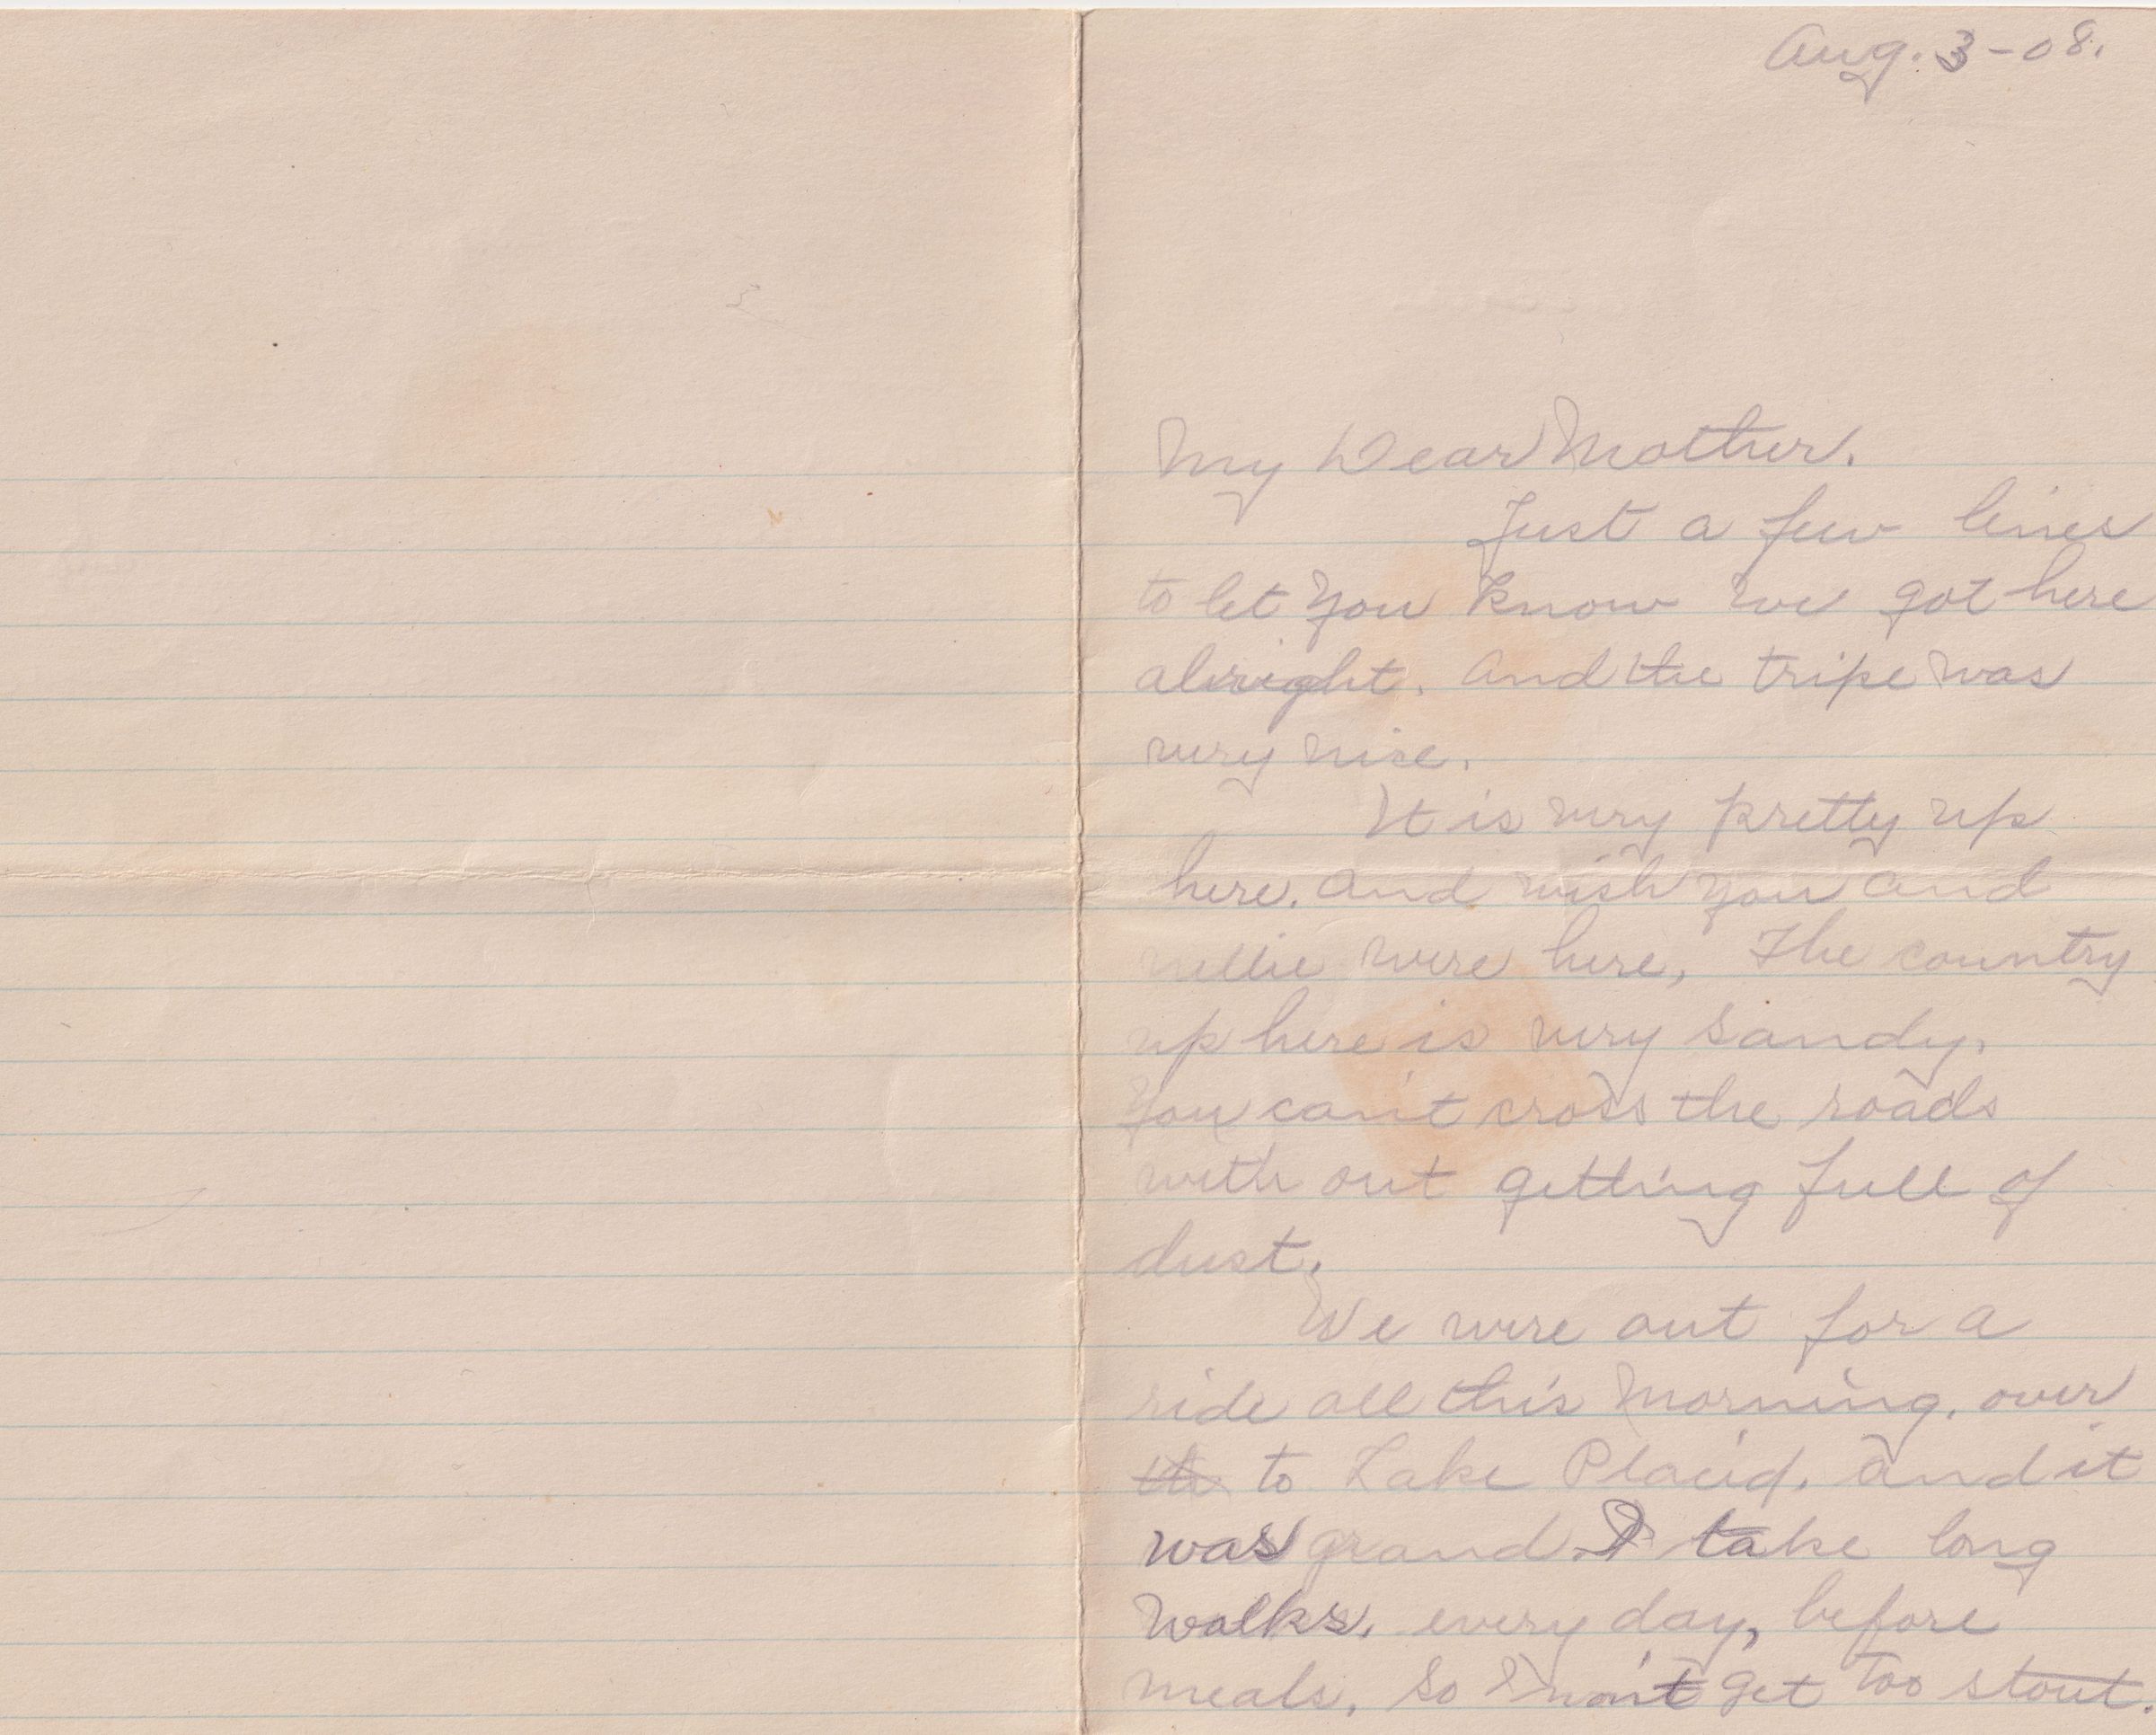 Aug. 3-08.
My Dear Mother.
Just a few lines
to let you know we got here
alright. And the tripe was
very nice.
It is very pretty up
here. And wish you and
nellie were here, The country
up here is very sandy.
You can't cross the roads
with out getting full of
dust.
We were out for a
ride all this morning. over
th to Lake Placid. And it
was grand. I take long
walks. every day, before
meals. So I won't get too stout.